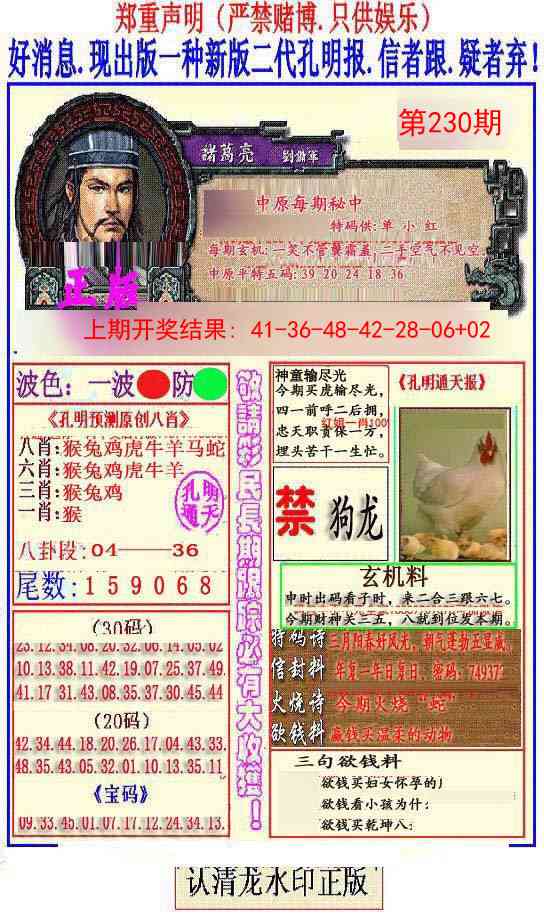 郑重声明（严禁赌博.只供娱乐）
好消息.现出版一种新版二代孔明报.信者跟.疑者弃!
第230期
諸葛亮
中原每期秘中
特码供:单 小 红
每期玄机:一笑不管襄霜盖,二手空气不见空.
中原平特五码:39 20 24 18 36
正版
上期开奖结果: 41-36-48-42-28-06+02
波色：一波 防
《孔明预测原创八肖》
八肖:猴兔鸡虎牛羊马蛇
六肖:猴兔鸡虎牛羊
三肖:猴兔鸡
一肖:猴
孔明
通天
八卦段:04——36
尾数:159068
(30码)
23.12.34.08.20.32.06.14.05.02
10.13.38.11.42.19.07.25.37.49.
41.17 31.43.08.35.17.30.45.44
(20码)
42.34.44.18.20.26.17.04.43.33.
48.35.43.05.32.01.10.13.35.11
《宝码》
09.33.45.01.07.17.12.24.34.13.
敬請彩民長期跟踪必有大收獲！
神童输尽光
今期买虎输尽光,
四一前呼二后拥,
忠天职责保一方,
埋头苦干一生忙.
《孔明通天报》
禁 狗龙
玄机料
申时出码看子时，来二合三跟六七。
今期财神关三五，八就到位发本期。
特码诗 三月阳春好风光，朝气蓬勃五亚藏。
信封料 年复一年日复日，密码：749372
火烧诗 今期火烧“蛇”
欲钱料 赢钱买温柔的动物
三句欲钱料
欲钱买妇女怀孕的)
欲钱看小孩为什:
欲钱买乾坤八:
认清龙水印正版